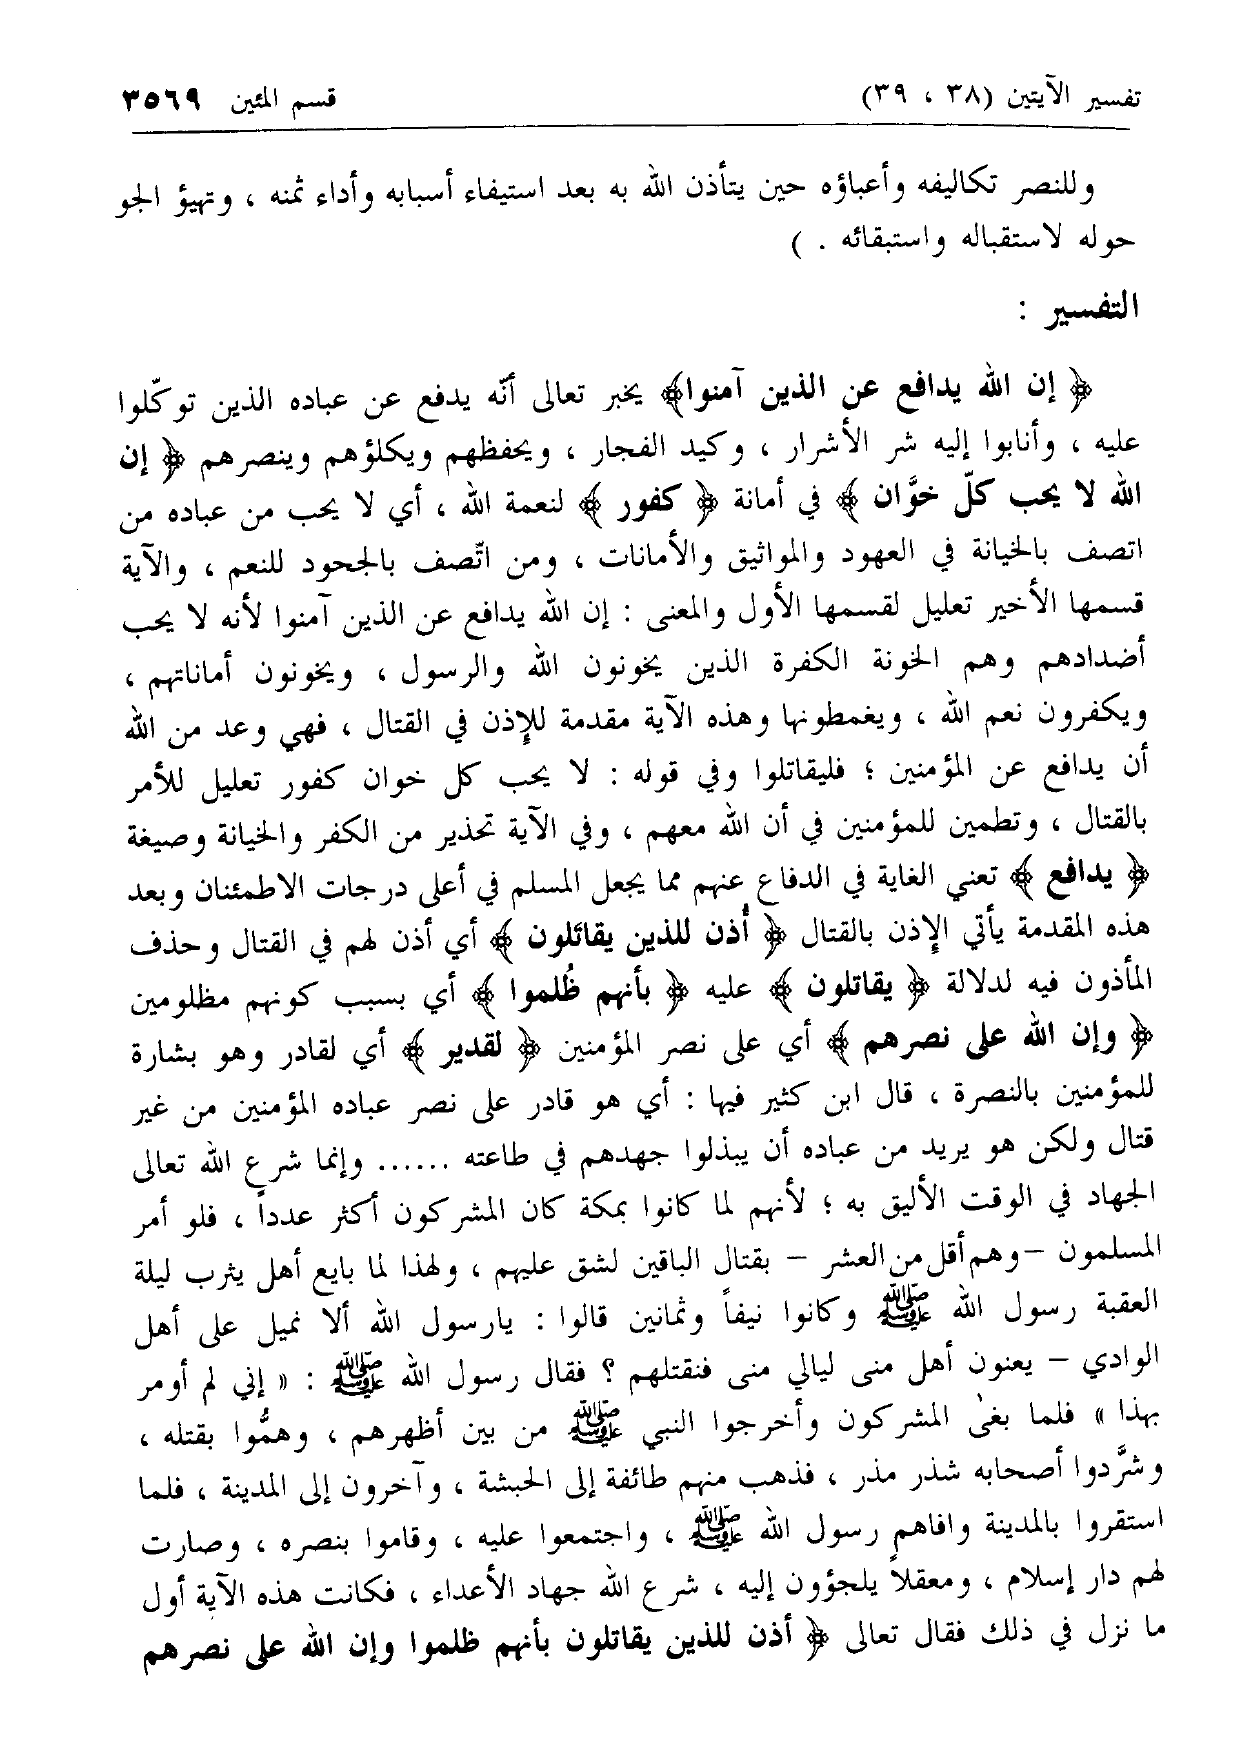 تفسير الآيتين (٣٨ ، ٣٩)
قسم المئين ٣٥٦٩
وللنصر تكاليفه وأعباؤه حين يتأذن الله به بعد استيفاء أسبابه وأداء ثمنه ، وتهيؤ الجو
حوله لاستقباله واستبقائه . )
التفسير :
﴿ إن الله يدافع عن الذين آمنوا﴾ يخبر تعالى أنّه يدفع عن عباده الذين توكّلوا
عليه ، وأنابوا إليه شر الأشرار ، وكيد الفجار ، ويحفظهم ويكلؤهم وينصرهم ﴿ إن
الله لا يحب كلّ خوَّان ﴾ في أمانة ﴿ كفور ﴾ لنعمة الله ، أي لا يحب من عباده من
اتصف بالخيانة في العهود والمواثيق والأمانات ، ومن اتّصف بالجحود للنعم ، والآية
قسمها الأخير تعليل لقسمها الأول والمعنى : إن الله يدافع عن الذين آمنوا لأنه لا يحب
أضدادهم وهم الخونة الكفرة الذين يخونون الله والرسول ، ويخونون أماناتهم ،
ويكفرون نعم الله ، ويغمطونها وهذه الآية مقدمة للإذن في القتال ، فهي وعد من الله
أن يدافع عن المؤمنين ؛ فليقاتلوا وفي قوله : لا يحب كل خوان كفور تعليل للأمر
بالقتال ، وتطمين للمؤمنين في أن الله معهم ، وفي الآية تحذير من الكفر والخيانة وصيغة
﴿ يدافع ﴾ تعني الغاية في الدفاع عنهم مما يجعل المسلم في أعلى درجات الاطمئنان وبعد
هذه المقدمة يأتي الإذن بالقتال ﴿ أُذن للذين يقاتلون ﴾ أي أذن لهم في القتال وحذف
المأذون فيه لدلالة ﴿ يقاتلون ﴾ عليه ﴿ بأنهم ظُلموا ﴾ أي بسبب كونهم مظلومين
﴿ وإن الله على نصرهم ﴾ أي على نصر المؤمنين ﴿ لقدير ﴾ أي لقادر وهو بشارة
للمؤمنين بالنصرة ، قال ابن كثير فيها : أي هو قادر على نصر عباده المؤمنين من غير
قتال ولكن هو يريد من عباده أن يبذلوا جهدهم في طاعته ...... وإنما شرع الله تعالى
الجهاد في الوقت الأليق به ؛ لأنهم لما كانوا بمكة كان المشركون أكثر عدداً ، فلو أمر
المسلمون – وهم أقل من العشر – بقتال الباقين لشق عليهم ، ولهذا لما بايع أهل يثرب ليلة
العقبة رسول الله ﷺ وكانوا نيفاً وثمانين قالوا : يارسول الله ألا نميل على أهل
الوادي – يعنون أهل منى ليالي منى فنقتلهم ؟ فقال رسول الله ﷺ : « إني لم أومر
بهذا » فلما بغىٰ المشركون وأخرجوا النبي ﷺ من بين أظهرهم ، وهمُّوا بقتله ،
وشرَّدوا أصحابه شذر مذر ، فذهب منهم طائفة إلى الحبشة ، وآخرون إلى المدينة ، فلما
استقروا بالمدينة وافاهم رسول الله ﷺ ، واجتمعوا عليه ، وقاموا بنصره ، وصارت
لهم دار إسلام ، ومعقلاً يلجؤون إليه ، شرع الله جهاد الأعداء ، فكانت هذه الآية أول
ما نزل في ذلك فقال تعالى ﴿ أذن للذين يقاتلون بأنهم ظلموا وإن الله على نصرهم